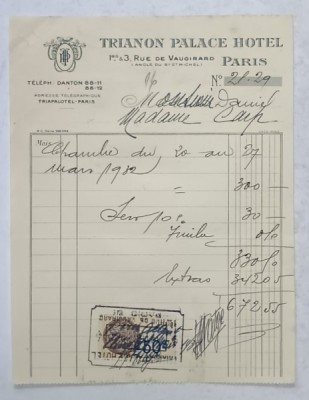 TRIANON PALACE HOTEL
1bis & 3, RUE DE VAUGIRARD
(ANGLE DU Bd ST MICHEL)
PARIS
TÉLÉPH: DANTON 88-11
88-12
ADRESSE TÉLÉGRAPHIQUE
TRIAPALOTEL-PARIS
No 28-29
Monsieur Daniel
Madame Carp
Chambre du 20 au 27
mars 1932
= 300 —
Serv 10% 30 —
Extras 342 05
672 55